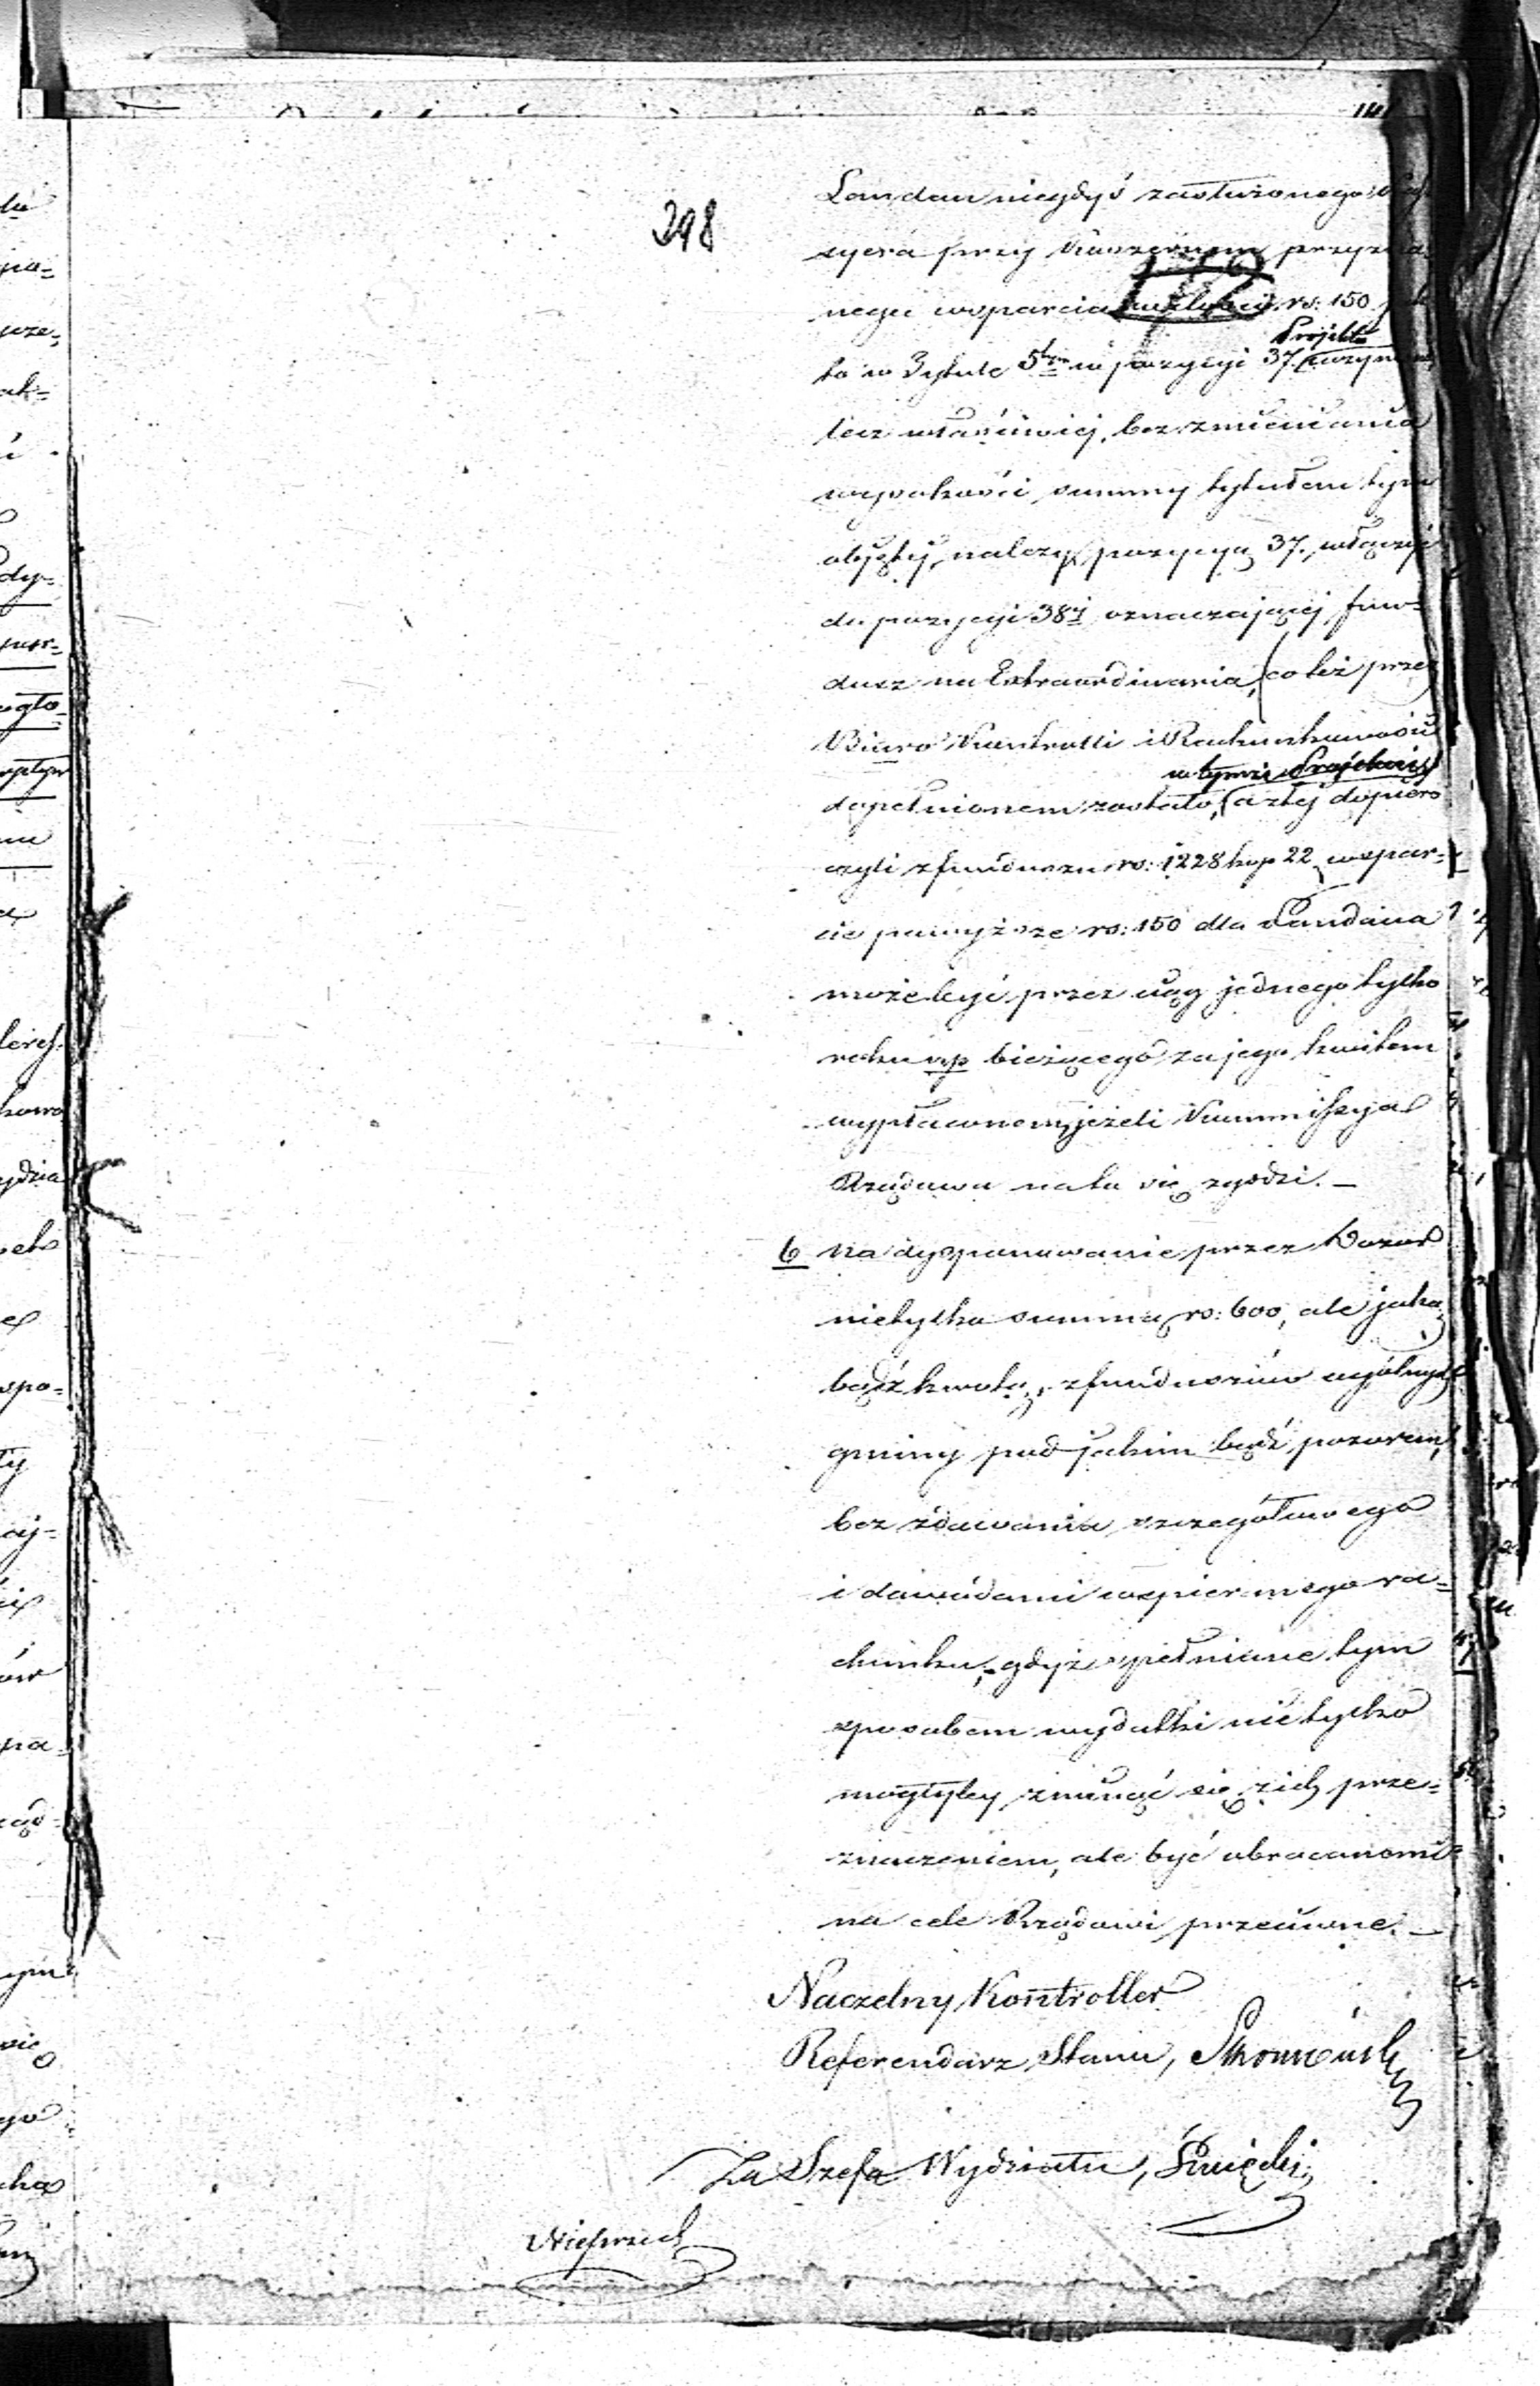 298
Landau niegdyś zasłużonego
syera przy Koszernem przyzna
nego wsparcia rs: 150
Projektu
to w Tytule 5tym w pozycyi 37.
lecz właściwiej, bez zmieniania
wysokości summy tytułem tym
objętej, należy pozycyą 37. włączyć
do pozycyi 38ej oznaczającej fun=
dusz na Extraordinaria, co też przez
Biuro Kontrolli i Rachunkowości
w tymże Projekcie
dopełnionem zostało, a z tej dopiero
czyli z funduszu rs: 1228 kop 22 wspar=
cie powyższe rs: 150 dla Landaua
może być przez ciąg jednego tylko
roku np bieżącego za jego kwitem
wypłaconem jeżeli Kommissya
Rządowa na to się zgodzi. –
6 Na dysponowanie przez Dozór
nietylko summą rs: 600, ale jaką
bądź kwotą, z funduszów ogólnych
gminy pod jakim bądź pozorem,
bez zdawania szczegółowego
i dowodami wspiernego ra=
chunku, – gdyż spełniane tym
sposobem wydatki nietylko
mogłyby zminąć się z ich prze=
znaczeniem, ale być obracanemi
na cele Rządowi przeciwne. –
Naczelny Kontroller
Referendarz Stanu,
Za Szefa Wydziału, Święcki